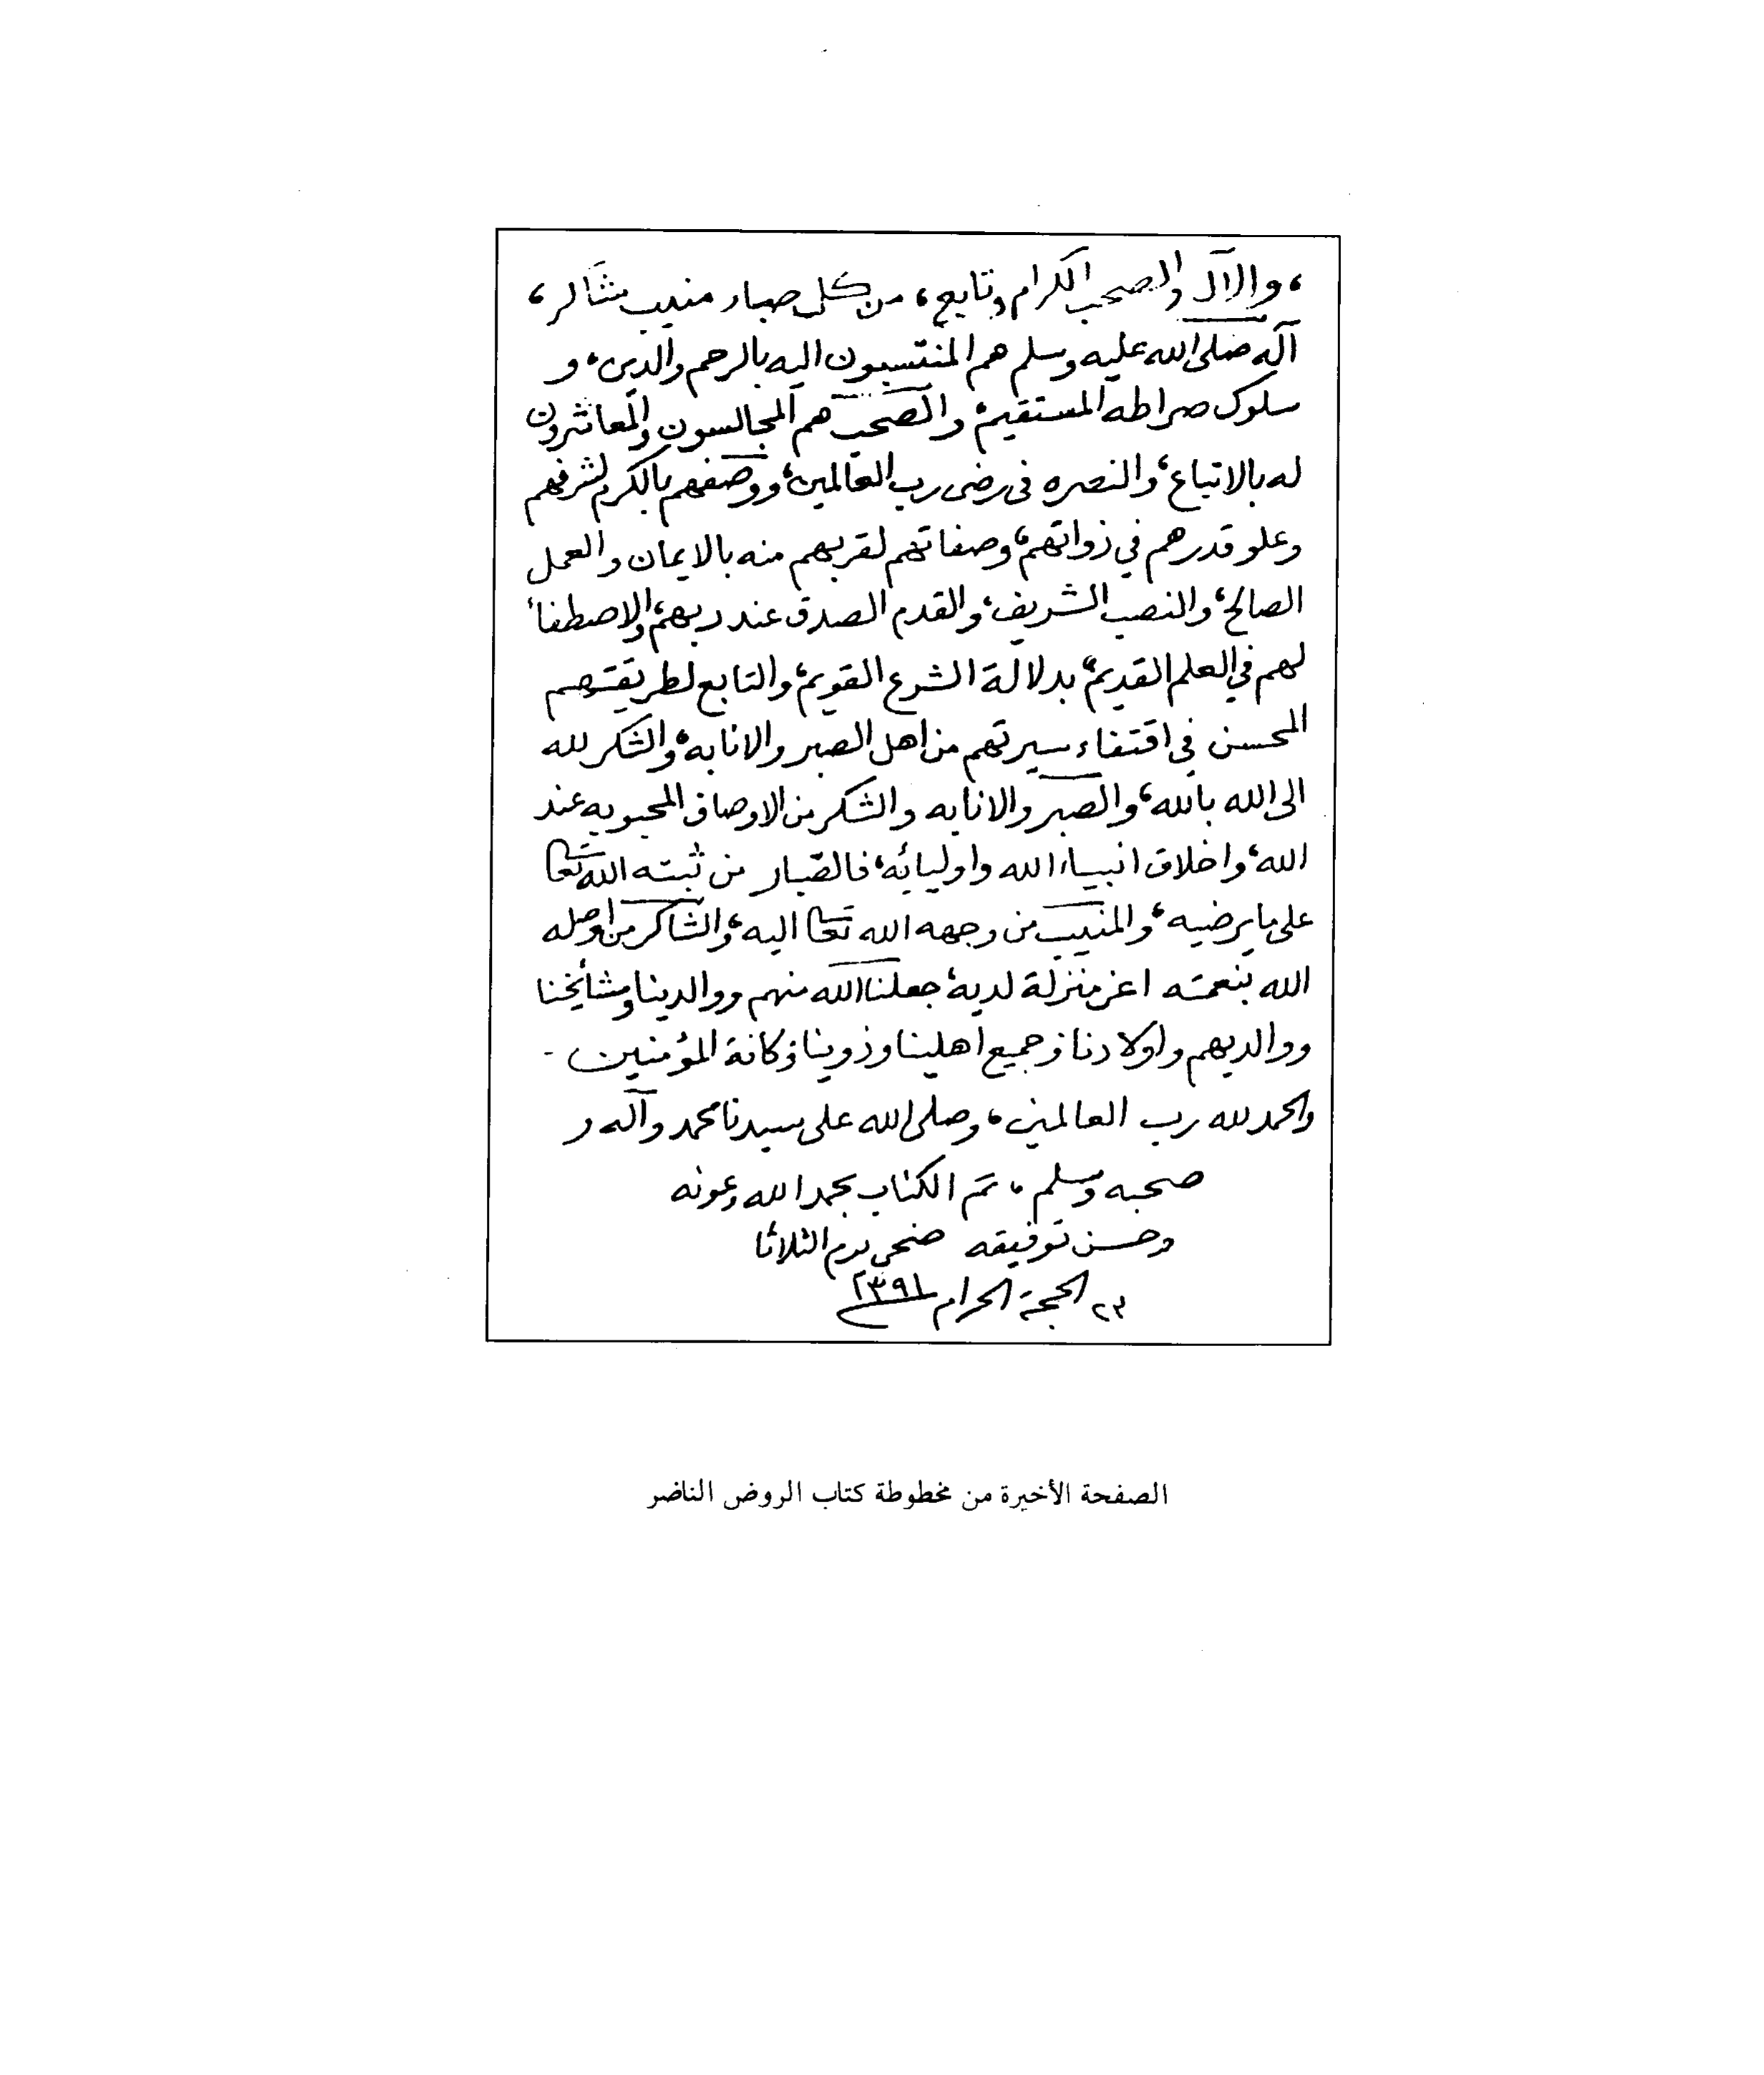 ، والآل والصحب الكرام وتابع ، من كل صبار منيب شاكر ،
آله صلى الله عليه وسلم هم المنتسبون اليه بالرحم والدين، و
سلوك صراطه المستقيم، والصحب هم المجالسون والمعاشرون
له بالاتباع، والنصره في رضى رب العالمين، ووصفهم بالكرم لشرفهم
وعلو قدرهم في ذواتهم، وصفاتهم لقربهم منه بالايمان والعمل
الصالح، والنصب الشريف، والقدم الصدق عند ربهم، والاصطفاء
لهم في العلم القديم، بدلالة الشرع القويم، والتابع لطريقتهم
المحسن في اقتفاء سيرتهم من اهل الصبر والانابه، والشكر لله
الى الله بالله، والصبر والانابه والشكر من الاوصاف المحبوبه عند
الله، واخلاق انبياء الله واوليائه، فالصّبار من ثبته الله تعا
على ما يرضيه، والمنيب من وجهه الله تعا اليه، والشاكر من اوصله
الله بنعمته اعز منزلة لديه، جعلنا الله منهم ووالدينا ومشائخنا
ووالديهم واولادنا وجميع اهلينا وذوينا وكافة المؤمنين -
والحمد لله رب العالمين، وصلى الله على سيدنا محمد وآله و
صحبه وسلم ، تم الكتاب بحمد الله وعونه
وحسن توفيقه ضحى يوم الثلاثا
الحجة الحرام ١٣٩١
الصفحة الأخيرة من مخطوطة كتاب الروض الناضر